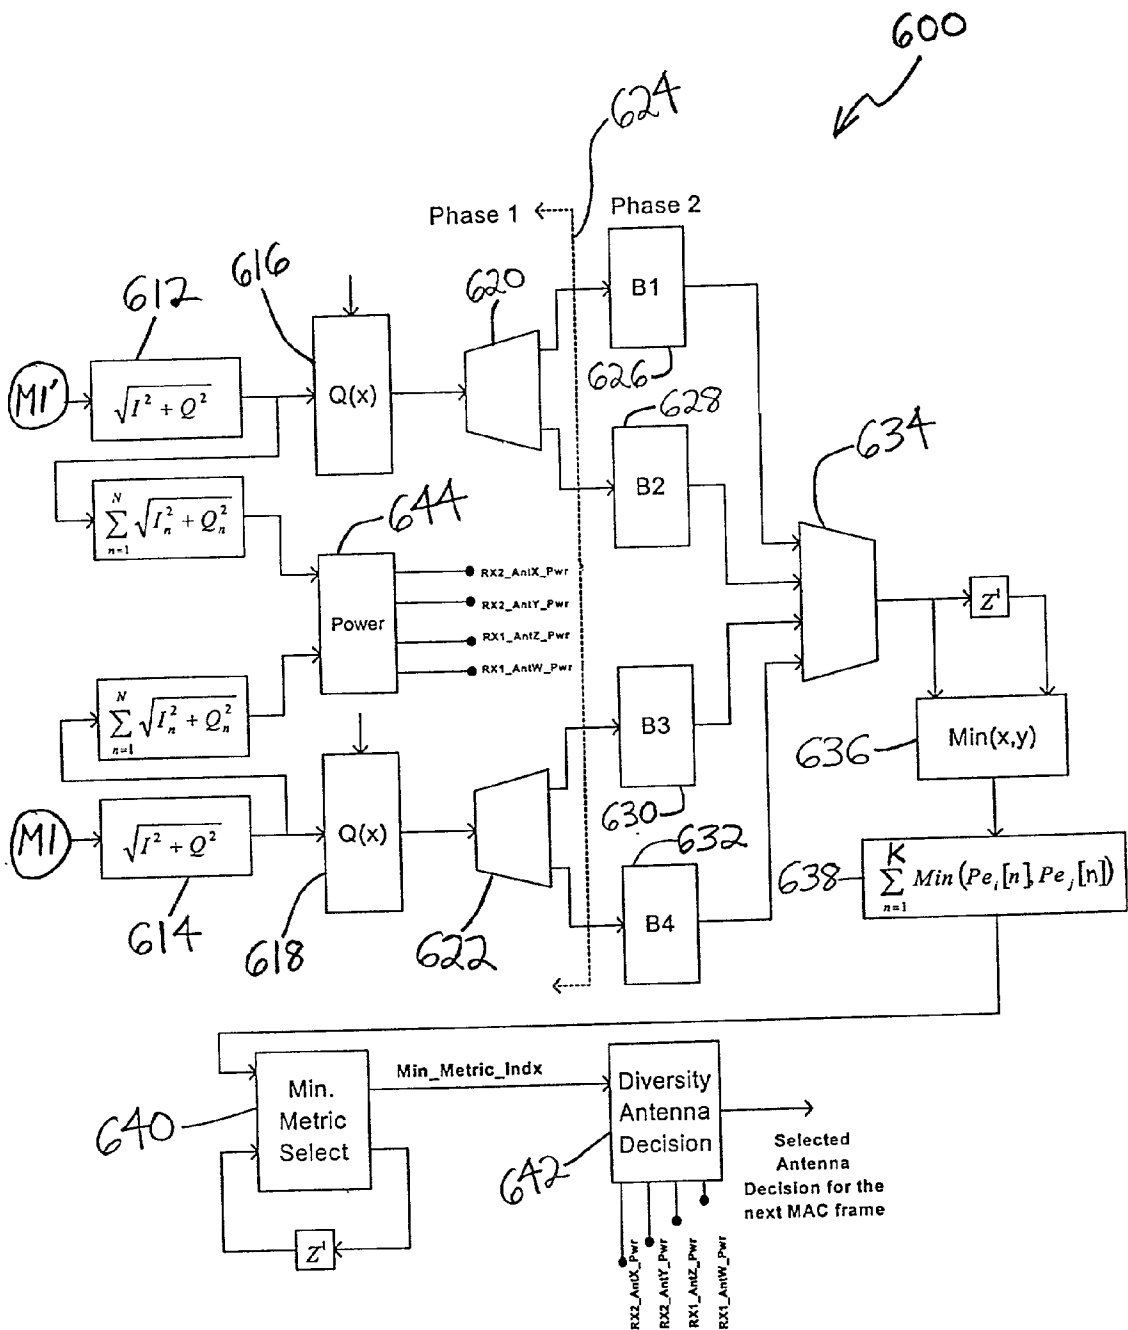 600
624
Phase 1
Phase 2
616
620
612
B1
626
M1'
√I² + Q²
Q(x)
628
634
B2
644
∑ n=1 N √Iₙ² + Qₙ²
RX2_AntX_Pwr
RX2_AntY_Pwr
Power
RX1_AntZ_Pwr
RX1_AntW_Pwr
Z¹
∑ n=1 N √Iₙ² + Qₙ²
B3
636
Min(x,y)
630
M1
√I² + Q²
Q(x)
632
638
∑ n=1 K Min (Peᵢ[n], Peⱼ[n])
614
618
622
B4
Min.
Metric
Select
640
Min_Metric_Indx
Diversity
Antenna
Decision
642
Selected
Antenna
Decision for the
next MAC frame
Z¹
RX2_AntX_Pwr
RX2_AntY_Pwr
RX1_AntZ_Pwr
RX1_AntW_Pwr